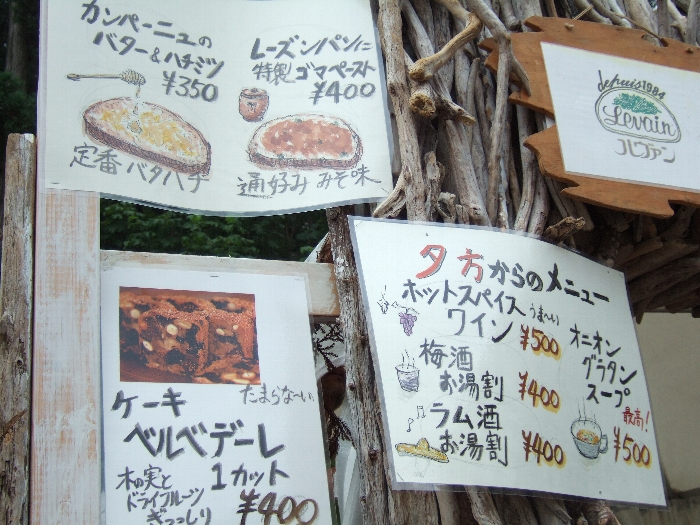 カンパーニュの
バター&ハチミツ
¥350
定番バタハチ
レーズンパンに
特製ゴマペースト
¥400
通好みみそ味
depuis1984
Levain
ルヴァン
夕方からのメニュー
ホットスパイス
うま〜い
ワイン ¥500
梅酒
お湯割 ¥400
ラム酒
お湯割 ¥400
オニオン
グラタン
スープ
最高!
¥500
たまらな〜い。
ケーキ
ベルベデーレ
1カット
¥400
木の実と
ドライフルーツ
ぎっっしり